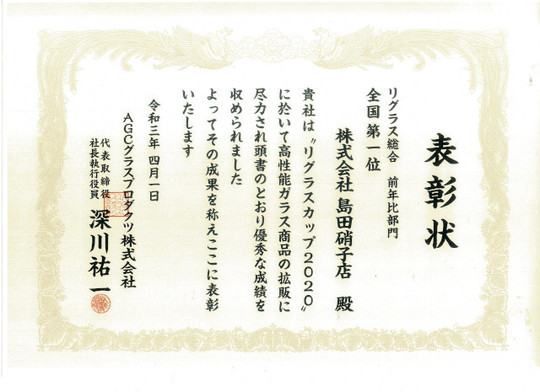 表彰状
リグラス総合 前年比部門
全国第一位
株式会社 島田硝子店 殿
貴社は〝リグラスカップ2020〟
に於いて高性能ガラス商品の拡販に
尽力され頭書のとおり優秀な成績を
収められました
よってその成果を称えここに表彰
いたします
令和三年四月一日
AGCグラスプロダクツ株式会社
代表取締役
社長執行役員
深川祐一